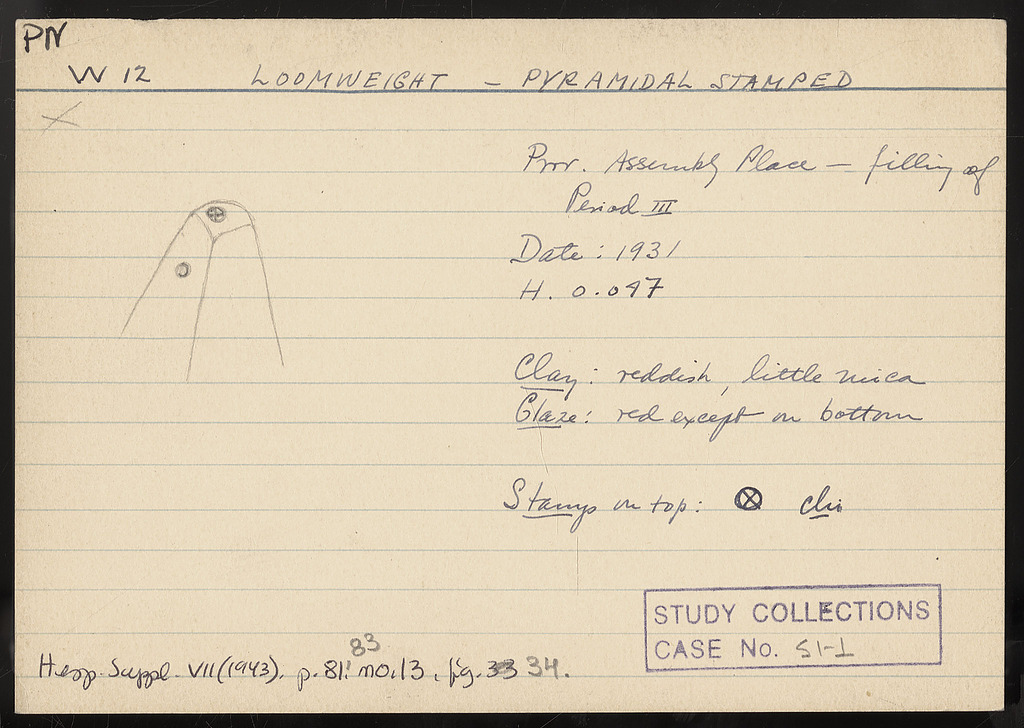 PN
W 12 LOOMWEIGHT – PYRAMIDAL STAMPED
Prov. Assembly Place – filling of
Period III
Date : 1931
H. 0.047
Clay : reddish, little mica
Glaze : red except on bottom
Stamps on top : ⊗
STUDY COLLECTIONS
CASE No. S1-1
83
Hesp. Suppl. VII (1943), p. 81: no. 13, fig. 33 34.